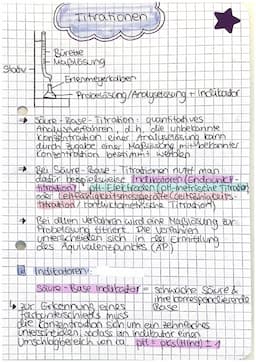 Titrationen
Bürette
Maßlösung
Stativ
Erlenmeyerkolben
Probelösung/Analyselösung + Indikator
→ Säure-Base-Titration: quantitatives
Analyseverfahren, d.h. die unbekannte
Konzentration einer Analyselösung kann
durch Zugabe einer Maßlösung mit bekannter
Konzentration bestimmt werden
→ Bei Säure-Base-Titrationen nutzt man
dafür beispielsweise Indikatoren (Endpunkt-
titration), pH-Elektroden (pH-metrische Titration)
oder Leitfähigkeitsmessgeräte (Leitfähigkeits-
titration / konduktometrische Titration)
→ Bei allen Verfahren wird eine Maßlösung zur
Probelösung titriert. Die Verfahren
unterscheiden sich in der Ermittlung
des Äquivalenzpunktes (ÄP)
Indikatoren:
Säure-Base Indikator = schwache Säure &
ihre korrespondierende
Base
↳ zur Erkennung eines
Farbunterschieds muss
die Konzentration sich um ein zehnfaches
unterscheiden, sodass ein Indikator einen
Umschlagbereich von ca. pH = pKs (HIn) ± 1